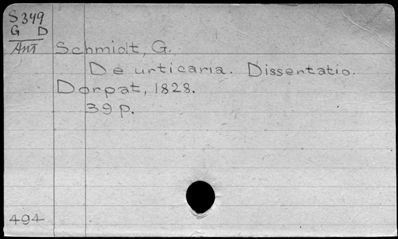 S349
G D
Ant
Schmidt, G.
De urticaria. Dissertatio.
Dorpat, 1828.
39 p.
494